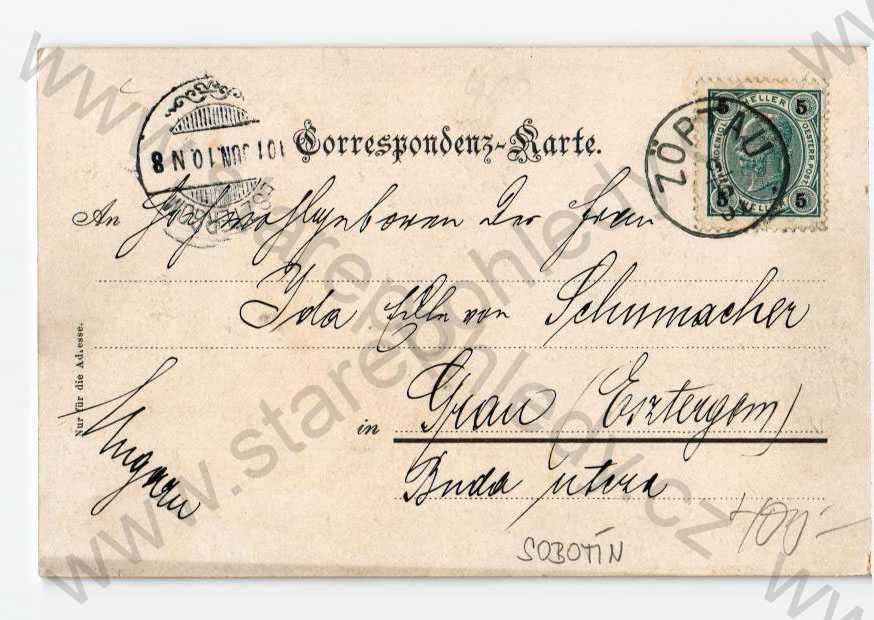 Correspondenz-Karte.
ZÖPTAU
5 HELLER 5
5 5
101 JUN. 10. N 8
An Hochwohlgeboren der Frau
Ida Edle von Schumacher
in Gran (Esztergom)
Buda utcza
Ungarn
Nur für die Adresse.
SOBOTÍN
www.starepohledy.cz